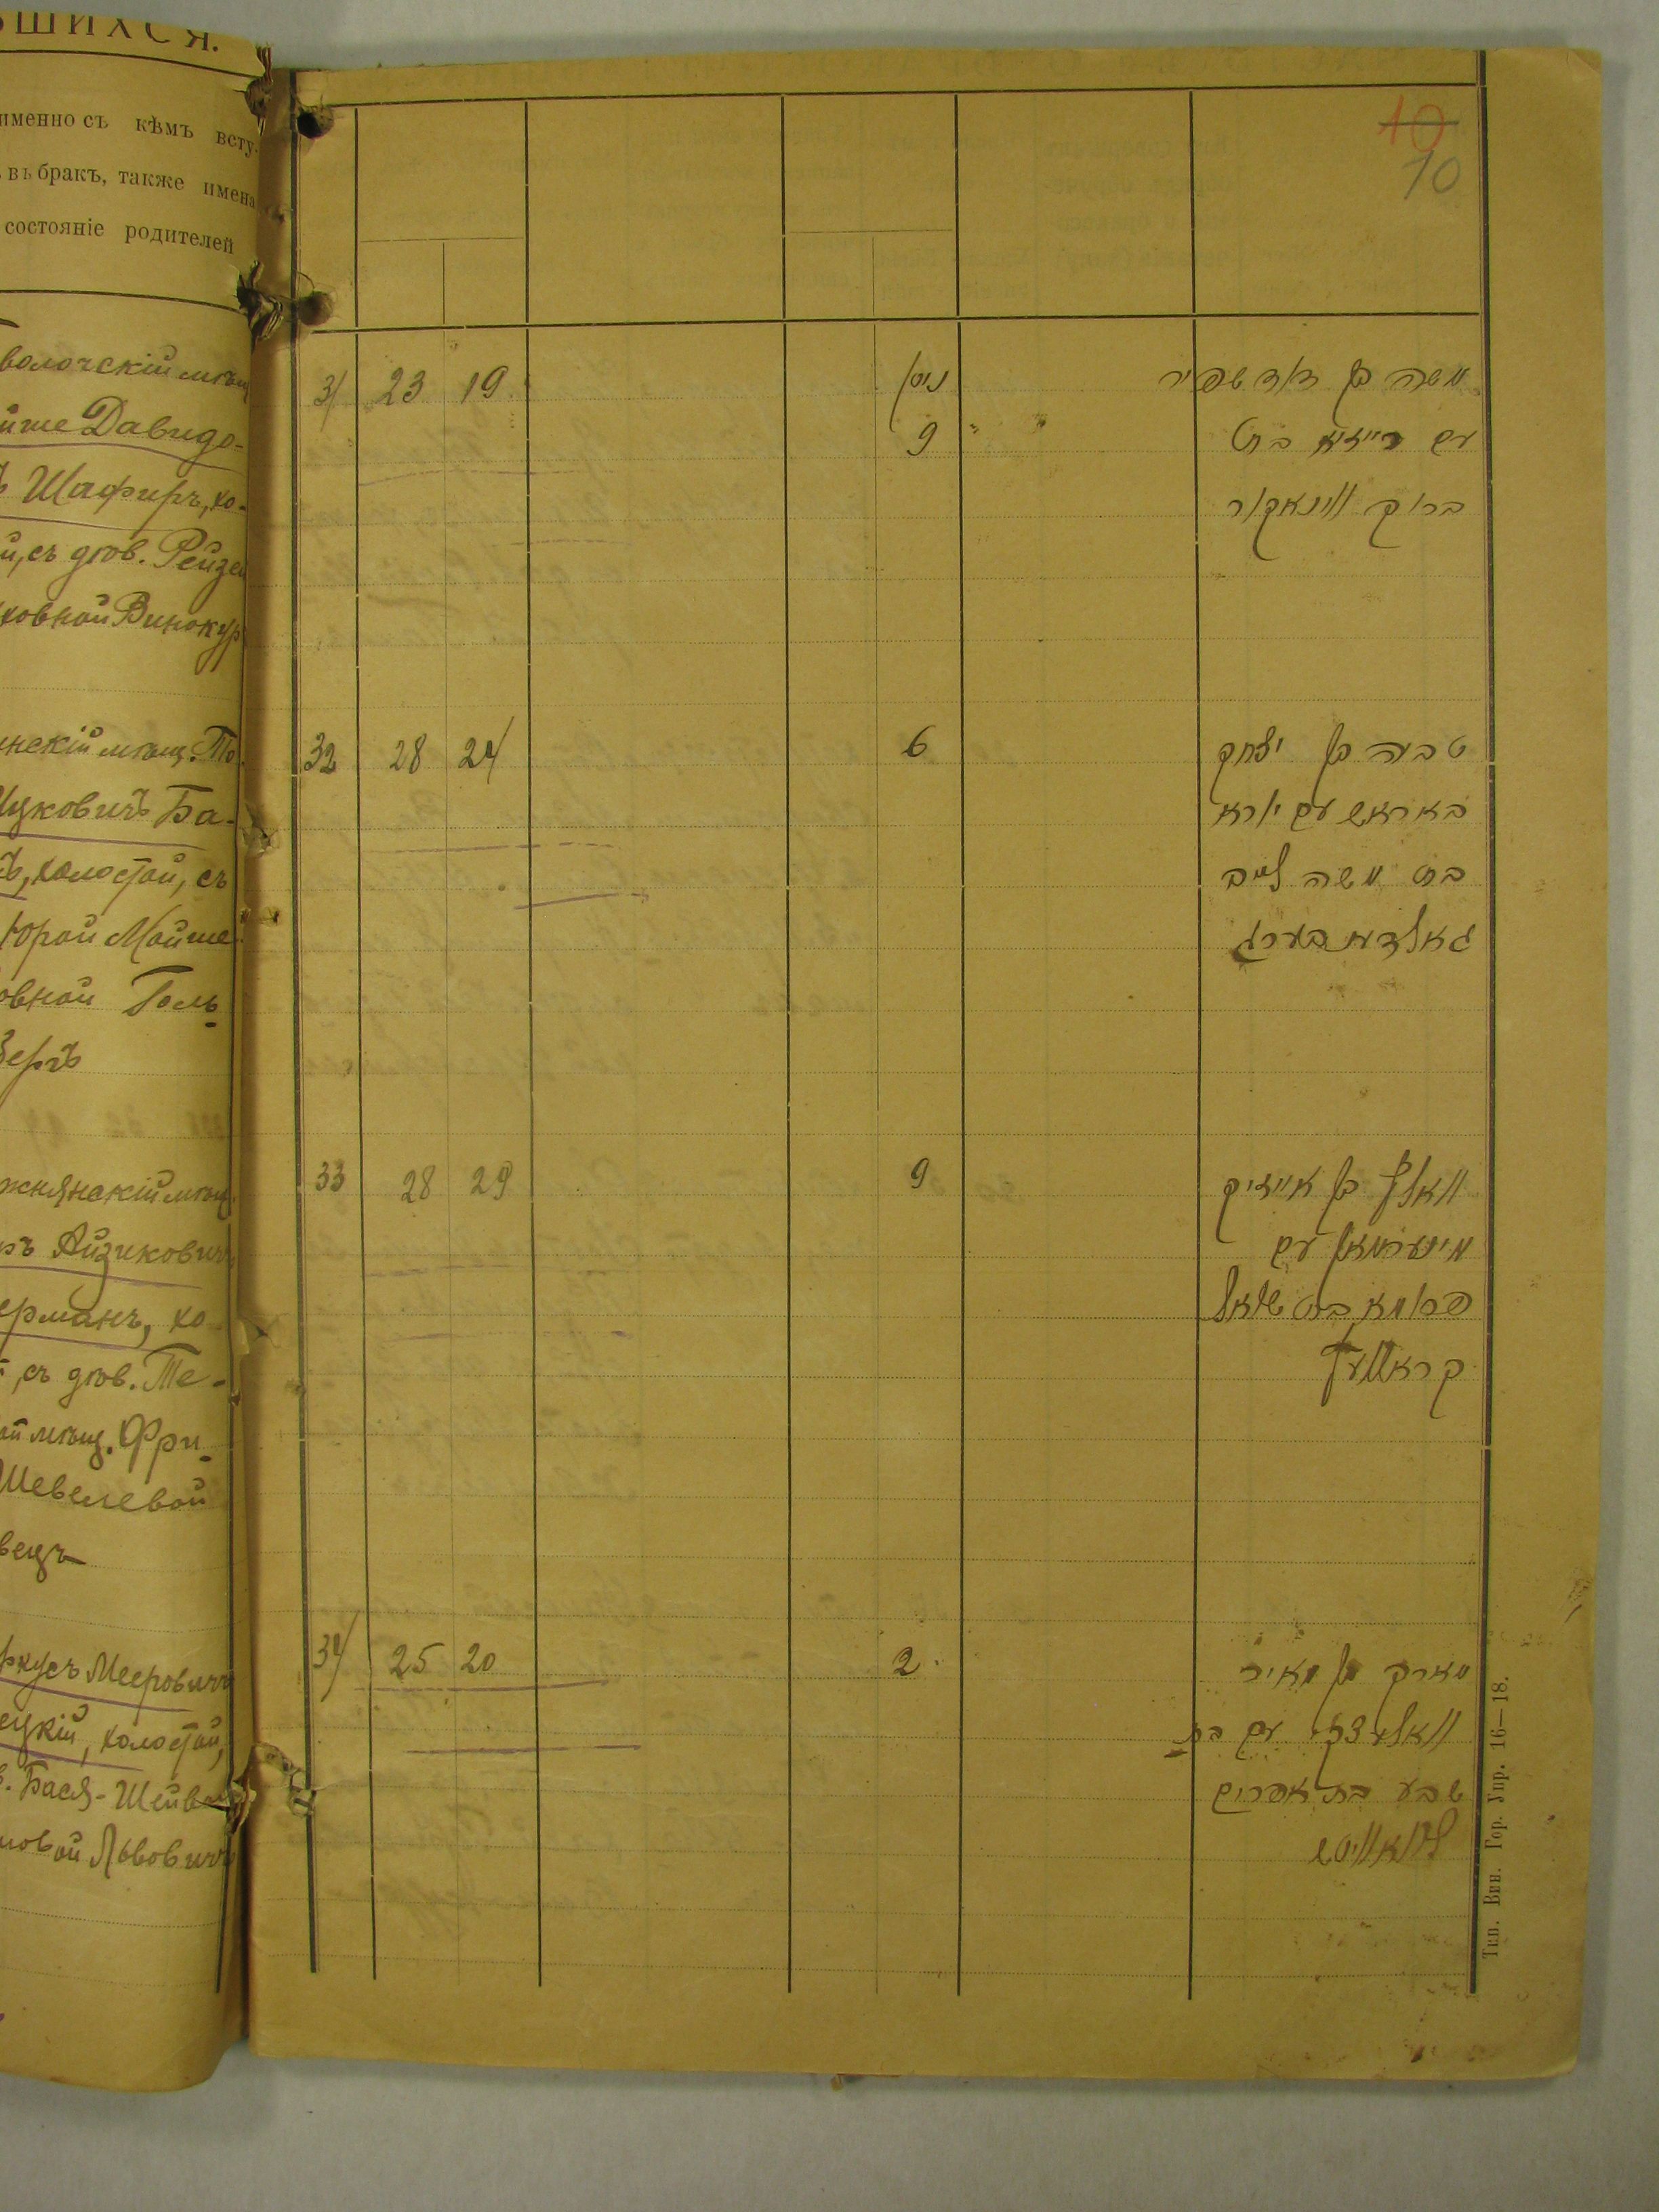 ВШИХСЯ.
именно съ кѣмъ всту-
въ бракъ, также имена
состояніе родителей
волочскій мѣщ
Давидо-
Шафиръ, хо-
й, съ дѣв. Рейзе
ховной Винокур
нскій мѣщ. То
Ицковичъ Ба-
холостой, съ
Юрой Мойше
овной Голь
берг
жнянскій мѣщ.
Айзикович
ерманъ, хо
съ дѣв. Те-
мѣщ. Фри-
Шевелевой
вецъ
ркусъ Меерович
ецкій, холостой,
Бася-Шейв
мовой Львович
10
10
31 23 19 ניסן משה בן דוד שפיר
9 " " עם רייזיא בת
ברוך ווינאקור
32 28 24 6 טביה בן יצחק
באראש עם יורא
בת משה לייב
גאלדבערג
33 28 29 9 וואלף בן אייזיק
מינערמאן עם
פרומא בת שאול
קראוועץ
34 25 20 2 מארק בן מאיר
עם בת
שבע בת אפרים
לוואוויטש
Тип. Вин. Гор. Упр. 16—18.